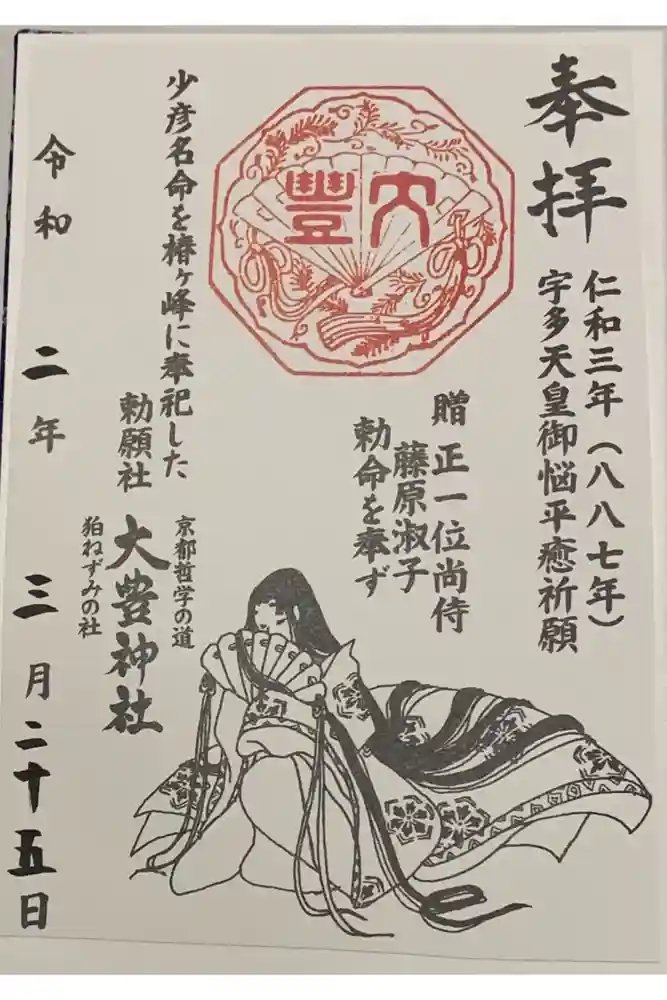 奉拝
仁和三年(八八七年)
宇多天皇御悩平癒祈願
贈 正一位尚侍
藤原淑子
勅命を奉ず
大豊
少彦名命を椿ヶ峰に奉祀した
勅願社
京都哲学の道
大豊神社
狛ねずみの社
令和二年三月二十五日